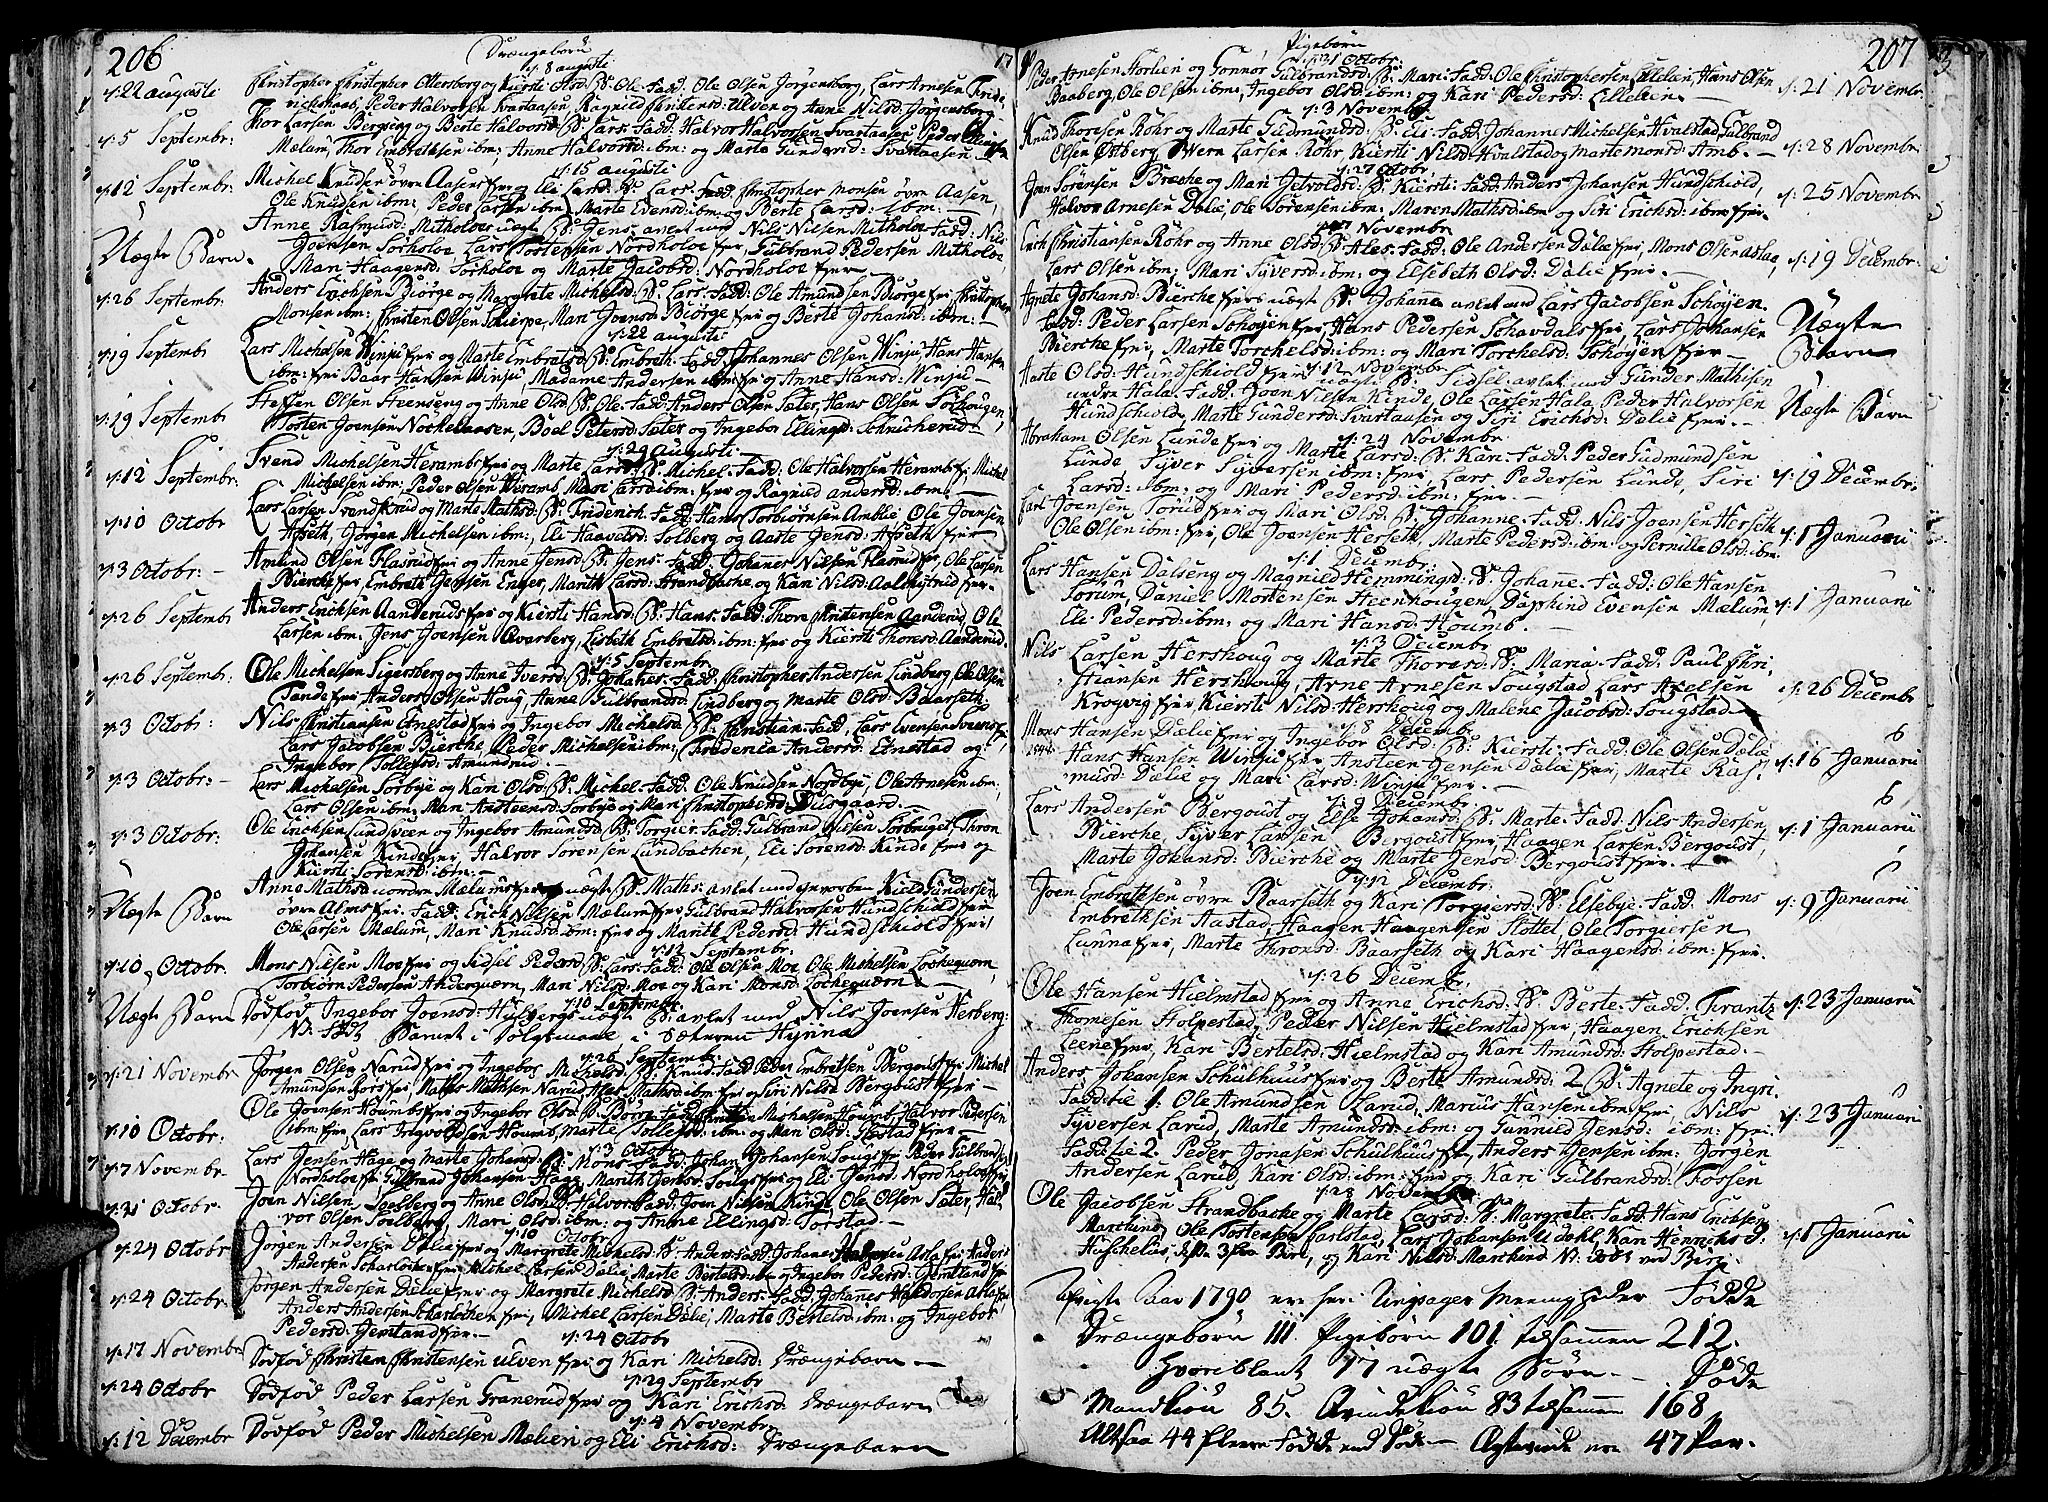 206
Drængebørn
d: 8 augusti
d: 22 augusti
Christopher Christophers: Ottersberg og Kirsti Olsd: B: Ole. Fadd: Ole Olsen Jørgensborg, Lars Arnesen Fride
richshaab, Peder Halvorsen Svartaasen, Ragnild Christensd: Ulven og Anne Nilsd: Jørgensborg
d: 5 Septembr:
Thor Larsen Bergseng og Berte Halvorsd: B: Lars. Fadd: Halvor Halvorsen Svartaasen, Peder
Mælum, Thor Embrethsen ibm:, Anne Halvorsd: ibm: og Marte Gundersd: Svartaasen
d: 15 augusti
d: 12 Septembr:
Michel Knudsen øvre Aasen fxr og Eli Larsd: B: Lars. Fadd: Christopher Monsen øvre Aasen,
Ole Knudsen ibm:, Peder Larsen ibm: Marte Evensd: ibm: og Berte Larsd: ibm: —
Uægte Barn.
Anne Rasmusd: Mitholoe uægte B: Gens avlet med Nils Nilsen Mitholoe Fadd: Nils
Joensen Sorholoe, Lars Tostensen Nordholoe fxr, Gulbrand Pedersen Mitholoe,
Mari Haagensd: Sorholoe og Marte Jacobsd: Nordholoe fxr
d: 26 Septembr:
Anders Erichsen Biørge og Margrete Michelsd: B: Lars. Fadd: Ole Amundsen Biørge fxr Christopher
Monsen ibm: Christen Olsen Schierpe, Mari Joensd: Biørge fxr og Berte Johansd: ibm: —
d: 22 augusti
d: 19 Septembr
Lars Michelsen Winju fxr og Marte Embretsd: B: Embreth. Fadd: Johannes Olsen Winju, Hans Hansen
ibm: fxr Baar Hansen Winju, Madame Andersen ibm: fxr og Anne Hansd: Winju —
d: 19 Septembr
Steffen Olsen Steenseng og Anne Olsd: B: Ole. Fadd: Anders Olsen Sæter, Hans Olsen
Tosten Joensen Nockelaasen, Boel Petersd: Sæter og Ingebor Ellingsd:
d: 29 Augusti
d: 12 Septembr:
Svend Michelsen Heramb fxr og Marte Larsd: B: Michel. Fadd: Ole Halvorsen Heramb fx: Michel
Michelsen ibm: Peder Olsen Heramb, Mari Larsd: ibm: fxr og Ragnild andersd: ibm: —
d: 10 Octobr
Lars Larsen Svendkrud og Marte Mathsd: B: Friderich. Fadd: Hans Torbiørnsen Amblie Ole Joensen
Afseth, Jørgen Michelsen ibm:, Eli Haavelsd: Solberg og Aarte Jensd: Afseth fxr
d: 3 Octobr: —
Amund Olsen Flasrud fxr og Anne Jensd: B: Jens. Fadd: Johanes Nilsen Flasrud fxr, Ole Larsen
Bierche fxr Embreth Jacobsen Enger, Marith Larsd: Strandbache og Kari Nilsd:
d: 26 Septembr
Anders Erichsen Aanderud fxr og Kiersti Hansd: B: Hans. Fadd: Thore Christensen Aanderud, Ole
Larsen ibm: Jens Joensen Qvarberg, Lisbeth Embretsd: ibm: fxr og Kiersti Thoresd: Aanderud.
d: 5 Septembr
d: 26 Septembr:
Ole Michelsen Sigersberg og Anne Iversd: B: Johanes. Fadd: Christopher Andersen Lindberg, Ole Olsen
Tande fxr Anders Olsen Houg, Anne Gulbrandsd: Lindberg og Marte Olsd: Baarseth
d: 3 Octobr:
Nils Christiansen Ernestad fxr og Ingebor Michelsd: B: Christian. Fadd: Lars Evensen
Lars Jacobsen Bierche, Peder Michelsen ibm:, Frederica Andersd: Ernestad og
Ingebor Tollefsd: Amundrud. —
d: 3 Octobr: —
Lars Michelsen Sorbye og Kari Olsd: B: Michel. Fadd: Ole Knudsen Nordbye, Ole Arnesen ibm:
Lars Olsen ibm: Mari Ansteensd: Sorbye og Mari Christophersd: Disgaard. —
d: 3 Octobr:
Ole Erichsen Lundsveen og Ingebor Amundsd: B: Torgier. Fadd: Gulbrand Nilsen
Johansen Kinde fxr, Halvor Sorensen Lundbachen, Eli Sorensd: Kinde fxr og
Kiersti Sorensd: ibm: —
Uægte Barn
Anne Mathsd: nordre Mælum fxr uægte B: Maths: avlet med Kield Gundersen
øvre Alm fxr. Fadd: Erich Nilsen Mælum fxr Gulbrand Halvorsen Hundschiold fxr
Ole Larsen Mælum, Mari Knudsd: ibm: fxr og Marith Pedersd: Hundschiold fxr
d: 12 Septembr.
d: 10 Octobr.
Mons Nilsen Moe fxr og Sidsel Pedersd: B: Lars: Fadd: Ole Olsen Moe, Ole Michelsen Lochequærn
Torbiørn Pedersen Anderquærn, Mari Nilsd: Moe og Kari Monsd: Lochequærn —
d: 10 Septembr.
Uægte Barn
Dødfød Ingebor Joensd: uægte B: avlet med Nils Joensen Herberg:
NB: født Barnet i Solgsmane i Sæteren Hynna
d: 26 Septembr:
d: 21 Novembr
Jørgen Olsen Narud fxr og Ingebor Michelsd: B: Knud. Fadd: Peder Embretsen Bergoust fxr Michel
Amundsen fxr, Maths Mathsen Narud, Ales Mathsd: ibm: fxr og Siri Nilsd: Bergoust fxr —
d: 10 Octobr:
Ole Joensen Houmb fxr og Ingebor Olsd: B: Børre. Fadd: Michelsen Houmb, Halvor Pedersen
ibm: fxr, Lars Ingvoldsen Houmb, Marte Tollefsd: ibm: og Mari Olsd: fxr —
d: 3 Octobr
d: 7 Novembr
Lars Jensen Hage og Marte Johansd: B: Mons. Fadd: Johan Johansen fxr Peder Gulbrandsen
Nordholoe fxr Gulbrand Johansen Hage, Marith Jensd: fxr og Eli Jensd: Nordholoe fxr
d: 31 Octobr
Joen Nilsen Soelberg og Anne Olsd: B: Halvor. Fadd: Joen Nilsen Kinde, Ole Olsen Sæter, Hal
vor Olsen Soelberg, Mari Olsd: ibm: og Anne Ellingsd: Torstad. —
d: 10 Octobr
d: 24 Octobr
Jørgen Andersen Dælie fxr og Margrete Michelsd: B: Anders. Fadd: Johanes Halvorsen Asla fxr Anders
Andersen Scharlochen fxr, Michel Larsen Dælie, Marte Bertelsd: ibm: og Ingebor Pedersd: Jemtland fxr
d: 24 Octobr.
Jørgen Andersen Dælie fxr og Margrete Michelsd: B: Anders. Fadd: Johanes Halvorsen Asla fxr
Anders Andersen Scharlochen fxr, Michel Larsen Dælie, Marte Bertelsd: ibm: og Ingebor
Pedersd: Jemtland fxr. —
d: 24 Octobr
d: 17 Novembr
Dødfød Christen Christensen Ulven fxr og Kari Michelsd: Drængebarn —
d: 29 Septembr
d: 24 Octobr
Dødfød Peder Larsen Granerud fxr og Kari Erichsd: Drængebarn
d: 4 Novembr
d: 12 Decembr
Dødfød Peder Michelsen Mælien og Eli Erichsd: Drængebarn
207
Pigebørn
d: 31 Octobr:
Peder Arnesen Storlien og Gonnor Gulbrandsd: B: Mari: Fadd: Ole Christophersen Lillelien, Hans Olsen
Baaberg, Ole Olsen ibm:, Ingebor Olsd: ibm: og Kari Pedersd: Lillelien —
d: 21 Novembr:
d: 3 Novembr
Knud Thoresen Røhr og Marte Gudmundsd: B: Eli. Fadd: Johannes Michelsen Hvalstad, Gulbrand
Olsen Østberg, Wern Larsen Røhr, Kiersti Nilsd: Hvalstad og Marte Monsd: Amb. —
d: 28 Novembr
d: 27 Octobr
Joen Sørensen Breche og Mari Jetvoldsd: B: Kiersti. Fadd: Anders Johansen Hundschiold,
Halvor Arnesen Dælie, Ole Sørensen ibm: Maren Mathsd: ibm: og Siri Erichsd: ibm: fxr.
d: 25 Novembr
d: 7 Novembr
Erich Christiansen Røhr og Anne Olsd: B: Ales. Fadd: Ole Andersen Dælie fxr, Mons Olsen Aslag,
Lars Olsen ibm:, Mari Syversd: ibm: og Elsebeth Olsd: Dælie fxr. —
d: 19 Decembr:
Agnete Johansd: Bierche fxr uægte B: Johanne avlet med Lars Jacobsen Schøyen
Fadd: Peder Larsen Schøyen fxr, Hans Pedersen Schavdal fxr, Lars Johansen
Bierche fxr, Marte Torchelsd: ibm: og Mari Torchelsd: Schøyen fxr —
Uægte
Barn
d: 12 Novembr
Aaste Olsd: Hundschiold fxr uægte B: Sidsel avlet med Gunder Mathisen
nedre Hala. Fadd: Joen Nilsen Kinde, Ole Larsen Hala, Peder Halvorsen
Hundschiold, Marte Gundersd: Svartaasen og Siri Erichsd: Dælie fxr. —
Uægte Barn
d: 24 Novembr
Abraham Olsen Lunde fxr og Marte Larsd: B: Kari. Fadd: Peder Gudmundsen
Lunde, Syver Syversen ibm: fxr, Lars Pedersen Lunde, Siri
Larsd: ibm: og Mari Pedersd: ibm: fxr. —
d: 19 Decembr.
Joensen fxr og Mari Olsd: B: Johanne. Fadd: Nils Joensen Herseth
Ole Olsen ibm: fxr, Ole Joensen Herseth, Marte Pedersd: ibm: og Pernille Olsd: ibm:
d: 1 Januari
d: 1 Decembr
Lars Hansen Dalseng og Magnild Hemmingsd: B: Johanne. Fadd: Ole Hansen
Sorum, Daniel Mortensen Steenhougen, Evensen Mælum,
Eli Pedersd: ibm: og Mari Hansd: Houmb. —
d: 1 Januari
d: 3 Decembr
Nils Larsen Hershoug og Marte Thoresd: B: Maria. Fadd: Paul Chri
stiansen Hershoug, Arne Arnesen Sougstad, Lars Axelsen
Krogvig fxr Kiersti Nilsd: Hershoug og Malene Jacobsd: Sougstad
d: 26 Decembr
d: 8 Decembr
Mons Hansen Dælie fxr og Ingebor Olsd: B: Kiersti. Fadd: Ole Olsen Dælie
Hans Hansen Winju fxr, Ansteen Jensen Dælie fxr, Marte Ras
musd: Dælie og Mari Larsd: Winju fxr. —
d: 16 Januari
d: 9 Decembr.
Lars Andersen Bergoust og Else Johansd: B: Marte. Fadd: Nils Andersen
Bierche, Syver Larsen Bergoust fxr, Haagen Larsen Bergoust,
Marte Johansd: Bierche og Marte Jensd: Bergoust fxr.
d: 1 Januari
d: 12 Decembr.
Joen Embrethsen øvre Baarseth og Kari Torgiersd: B: Elsebye. Fadd: Mons
Embrethsen Aastad, Haagen Haagensen Slottet, Ole Torgiersen
Lunna fxr, Marte Thronsd: Baarseth og Kari Haagensd: ibm: fxr.
d: 9 Januari
d: 26 Decembr.
Ole Hansen Hielmstad fxr og Anne Erichsd: B: Berte. Fadd: Frantz
Thomesen Stolpestad, Peder Nilsen Hielmstad fxr, Haagen Erichsen
Leene fxr, Kari Bertelsd: Hielmstad og Kari Amundsd: Stolpestad. —
d: 23 Januari
Anders Johansen Schulhuus fxr og Berte Amundsd: 2 B: Agnete og Ingri
Fadd: til 1: Ole Amundsen Larud, Marius Hansen ibm: fxr, Nils
Syversen Larud, Marte Amundsd: ibm: og Gunnild Jensd: ibm: fxr.
Fadd: til 2. Peder Jonasen Schulhuus fxr, Anders Jensen ibm: Jørgen
Andersen Larud, Kari Olsd: ibm: fxr og Kari Gulbrandsd: Fossen
d: 23 Januari
d: 28 Novembr:
Ole Jacobsen Strandbache og Marte Larsd: B: Margrete. Fadd: Hans Erichsen
Marchund, Ole Tostensen Carlstad, Lars Johansen Udahl, Kari Henrichsd:
Huschelius, 3 fra Biri, og Kari Nilsd: Marchund NB: døbt ved Biri.
d: 1 Januari
Afvigte Aar 1790 ere her i Ringsager Meenigheder Fødde
Drængebørn 111. Pigebørn 101. tilsammen 212.
Hvoriblant 17 uægte Børn. — Døde
Mandkiøn 85. Qvindekiøn 83 tilsammen 168
Altsaa 44 fleere Fødde end Døde — Ægteviede ere 47 Par.